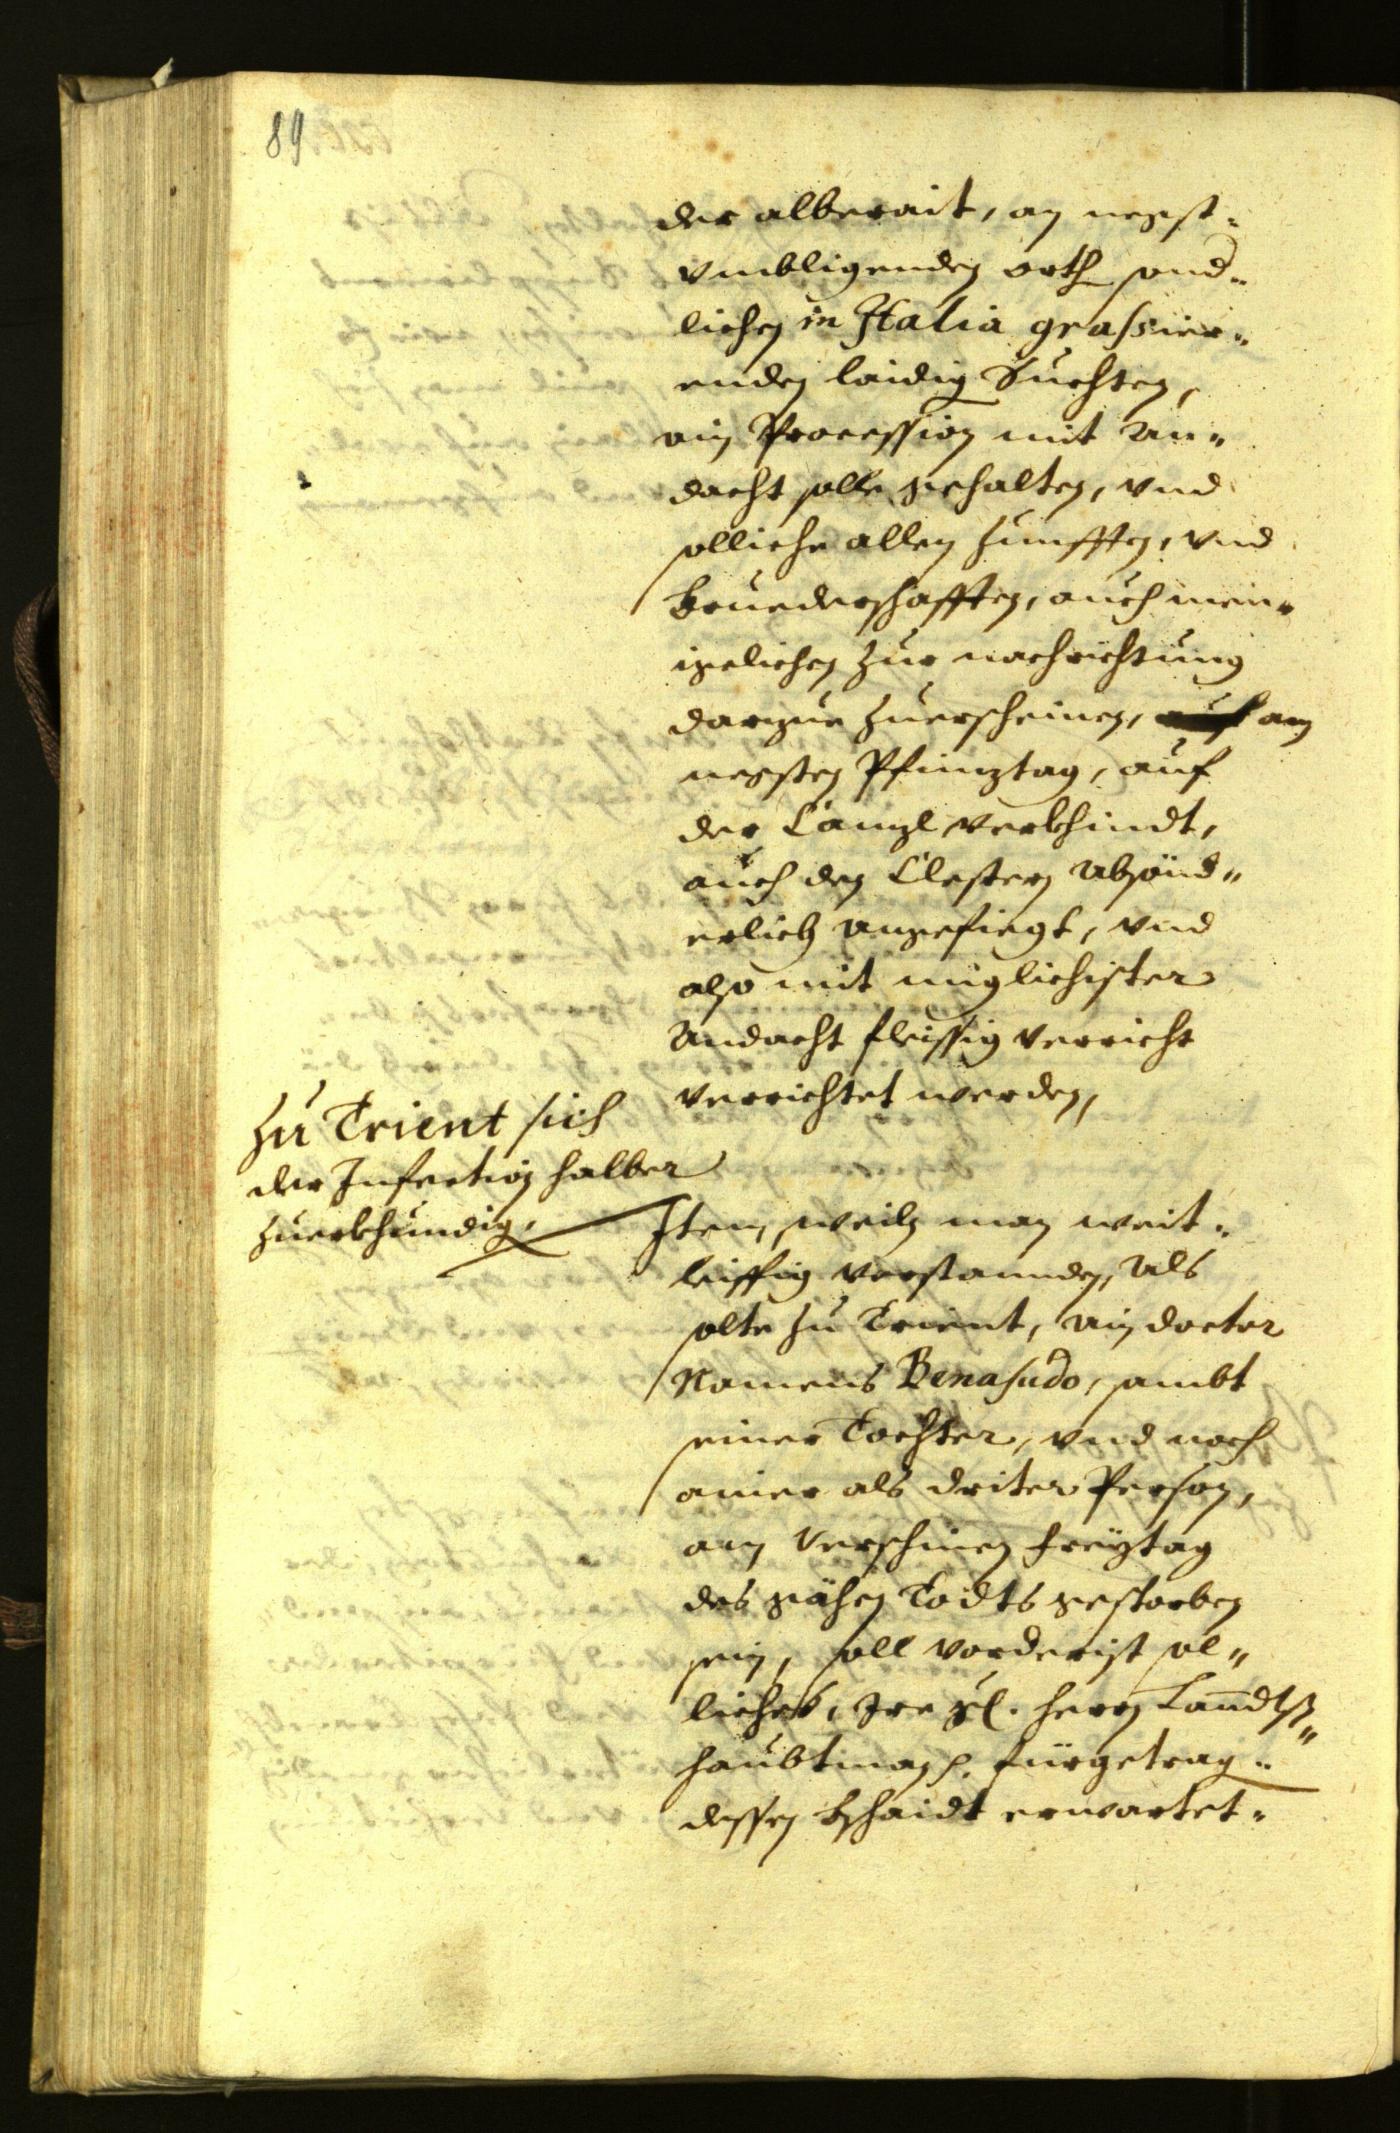 89
der alberait, an negst¬
vmbligenden orth sond¬
lichen in Italia grassier¬
enden laidig Suchten,
ain Procession mit An¬
dacht solle gehalten, vnd
solliche allen Zunfften, vnd
Bruederschafften, auch men¬
igelichen zur nachrichtung
darzue zuerscheinen, am
negsten Pfinztag, auf
der Canzl verkhindt,
auch den Clestern absönd¬
erlich angefiegt, vnd
also mit miglichister
Andacht fleissig verricht
verrichtet werden,
Zu Trient sich
der Infection halber
zuerkhundig.
Item, weiln man weit¬
leiffig verstannden, Als
solte zu Trient, ain doctor
Namens Benasudo, sambt
seiner Tochter, vnd noch
ainer als driter Person,
am verschinen Freÿtag
des gähen Todts gestorben
sein, soll vorderist sol¬
liches, Ire gl. herrn Landtß¬
haubtman p. fürgetrag¬
dessen bschaidt erwartet¬